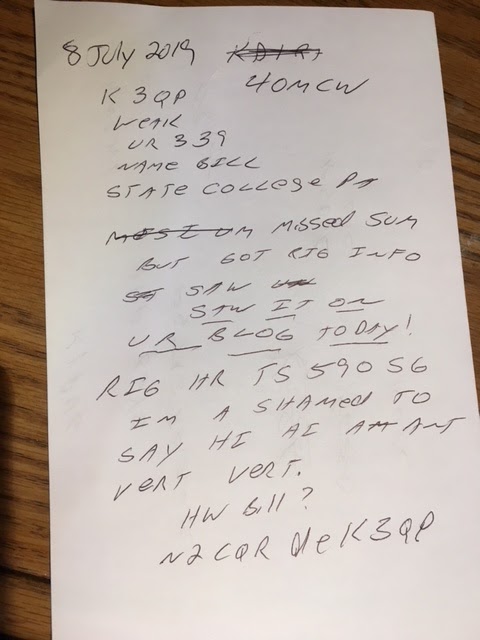 8 July 2019 KD1RI
40M CW
K3QP
WEAK
UR 339
NAME BILL
STATE COLLEGE PA
MISSED SUM
BUT GOT RIG INFO
SAW
SAW IT ON
UR BLOG TODAY!
RIG HR TS 590 SG
IM A SHAMED TO
SAY HI HI ANT
VERT VERT.
HW Bill?
N2CQR de K3QP